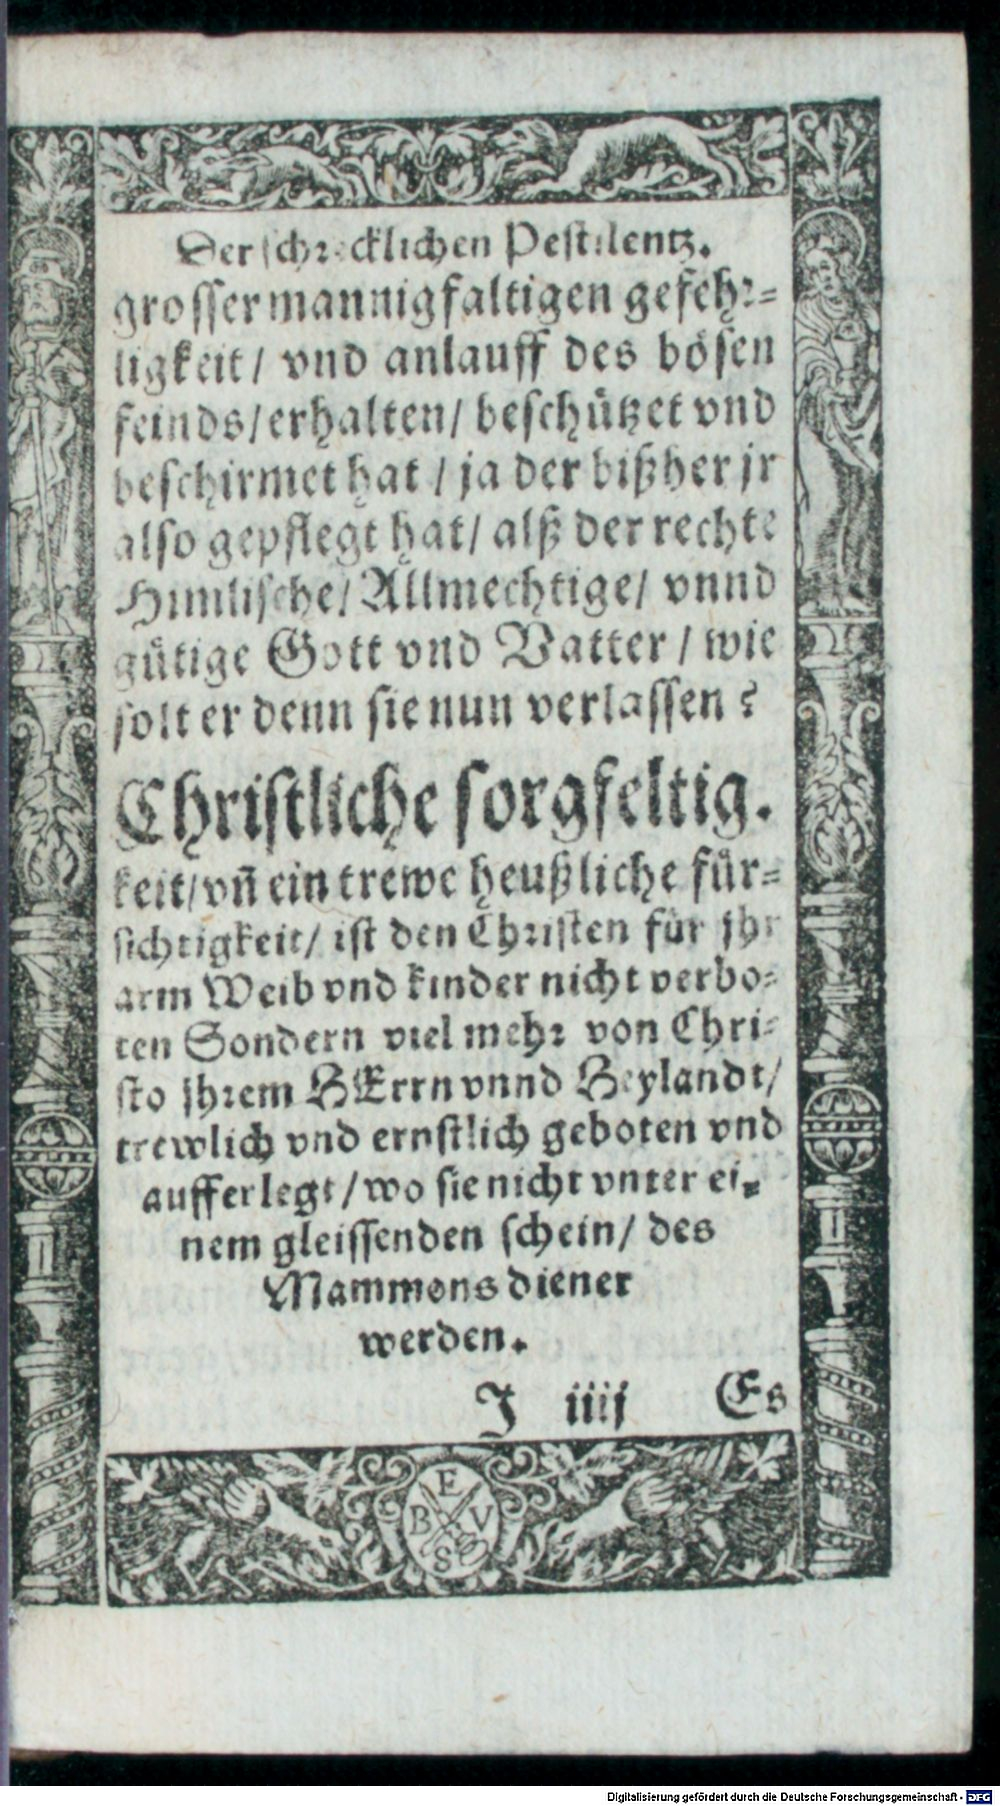 Der schrecklichen Pestilentz.
grosser mannigfaltigen gefehr⸗
ligkeit / vnd anlauff des bösen
feinds / erhalten / beschützet vnd
beschirmet hat / ja der bißher jr
also gepflegt hat / alß der rechte
Himlische / Allmechtige / vnnd
gütige Gott vnd Vatter / wie
solt er denn sie nun verlassen?
Christliche sorgfeltig.
keit / vñ ein trewe heußliche für⸗
sichtigkeit / ist den Christen für jhr
arm Weib vnd kinder nicht verbo⸗
ten Sondern viel mehr von Chri⸗
sto jhrem HErrn vnnd Heylandt /
trewlich vnd ernstlich geboten vnd
aufferlegt / wo sie nicht vnter ei⸗
nem gleissenden schein / des
Mammons diener
werden.
J iiij Es
E
B V
S
Digitalisierung gefördert durch die Deutsche Forschungsgemeinschaft - DFG